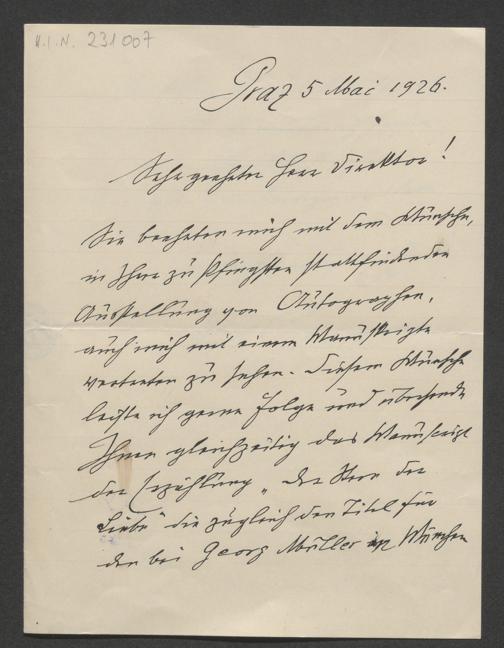 H.I.N. 231007
Graz 5 Mai 1926.
Sehr geehrter Herr Direktor!
Sie beehrten mich mit dem Wunsche,
in Ihrer zu Pfingsten stattfindenden
Ausstellung von Autographen,
auch mich mit einem Manuskripte
vertreten zu sehen. Diesem Wunsche
leiste ich gerne Folge und übersende
Ihnen gleichzeitig das Manuscript
der Erzählung „Der Stern der
Liebe" die zugleich den Titel für
den bei Georg Müller in München